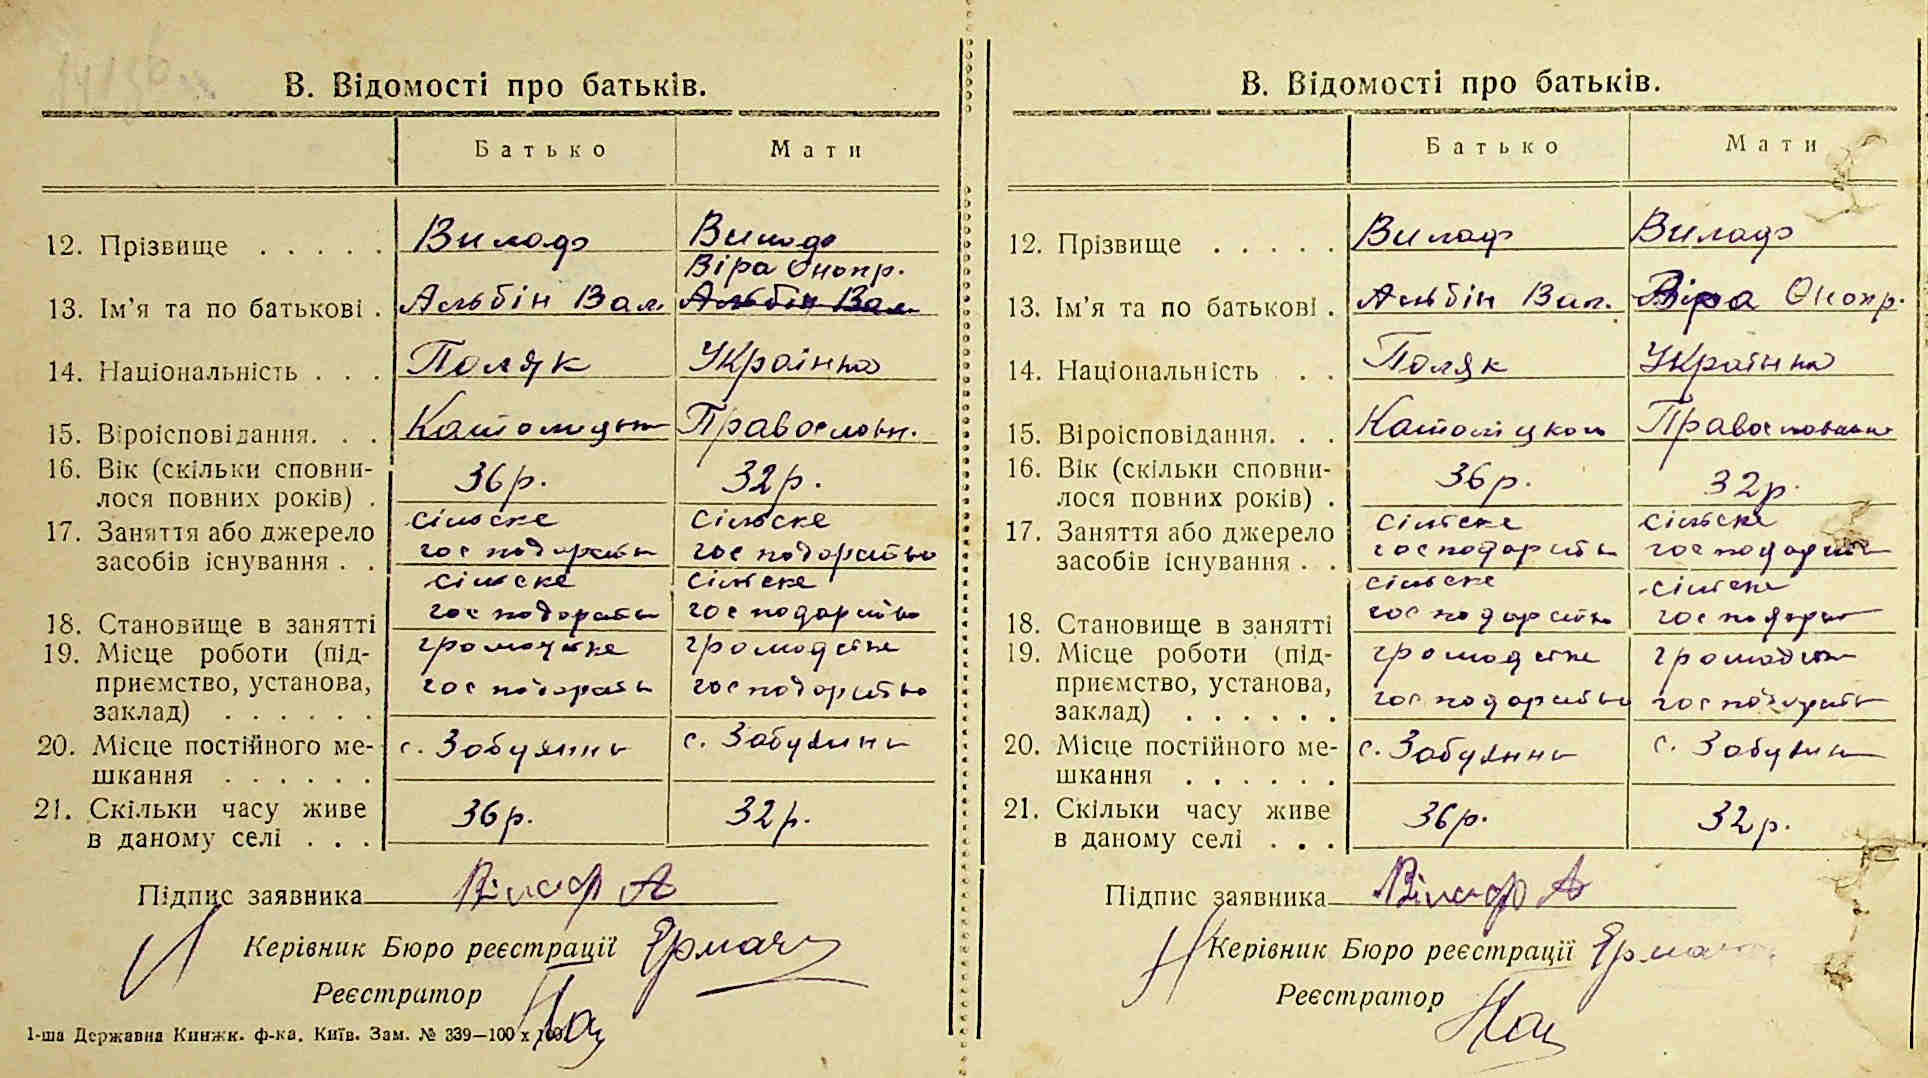 В. Відомості про батьків.
Батько Мати
12. Прізвище . . . . . Вилаф Вилаф
Віра Онопр.
13. Ім'я та по батькові . Альбін Вал. Альбін Вал.
14. Національність . . . Поляк Українка
15. Віроісповідання. . . Православн.
16. Вік (скільки сповни-
лося повних років) . 36 р. 32 р.
17. Заняття або джерело сільске сільске
засобів існування . . господарство господарство
сільске сільске
господарство господарство
18. Становище в занятті
19. Місце роботи (під- громадске громадске
приємство, установа, господарство господарство
заклад) . . . . . .
20. Місце постійного ме- с. Забуяння с. Забуяння
шкання . . . . . .
21. Скільки часу живе 36 р. 32 р.
в даному селі . . .
Підпис заявника Вілаф А
Керівник Бюро реєстрації
Реєстратор
1-ша Державна Книжк. ф-ка. Київ. Зам. № 339—100 х 100.
В. Відомості про батьків.
Батько Мати
12. Прізвище . . . . . Вилаф Вилаф
13. Ім'я та по батькові . Альбін Вал. Віра Онопр.
14. Національність . . Поляк Українка
15. Віроісповідання. . .
16. Вік (скільки сповни-
лося повних років) . 36 р. 32 р.
17. Заняття або джерело сільске сільске
засобів існування . . господарство господарство
сільске сільске
господарство господарство
18. Становище в занятті
19. Місце роботи (під- громадске громадске
приємство, установа, господарство господарство
заклад) . . . . . .
20. Місце постійного ме- с. Забуяння с. Забуяння
шкання . . . . . .
21. Скільки часу живе 36 р. 32 р.
в даному селі . . .
Підпис заявника Вілаф А
Керівник Бюро реєстрації
Реєстратор